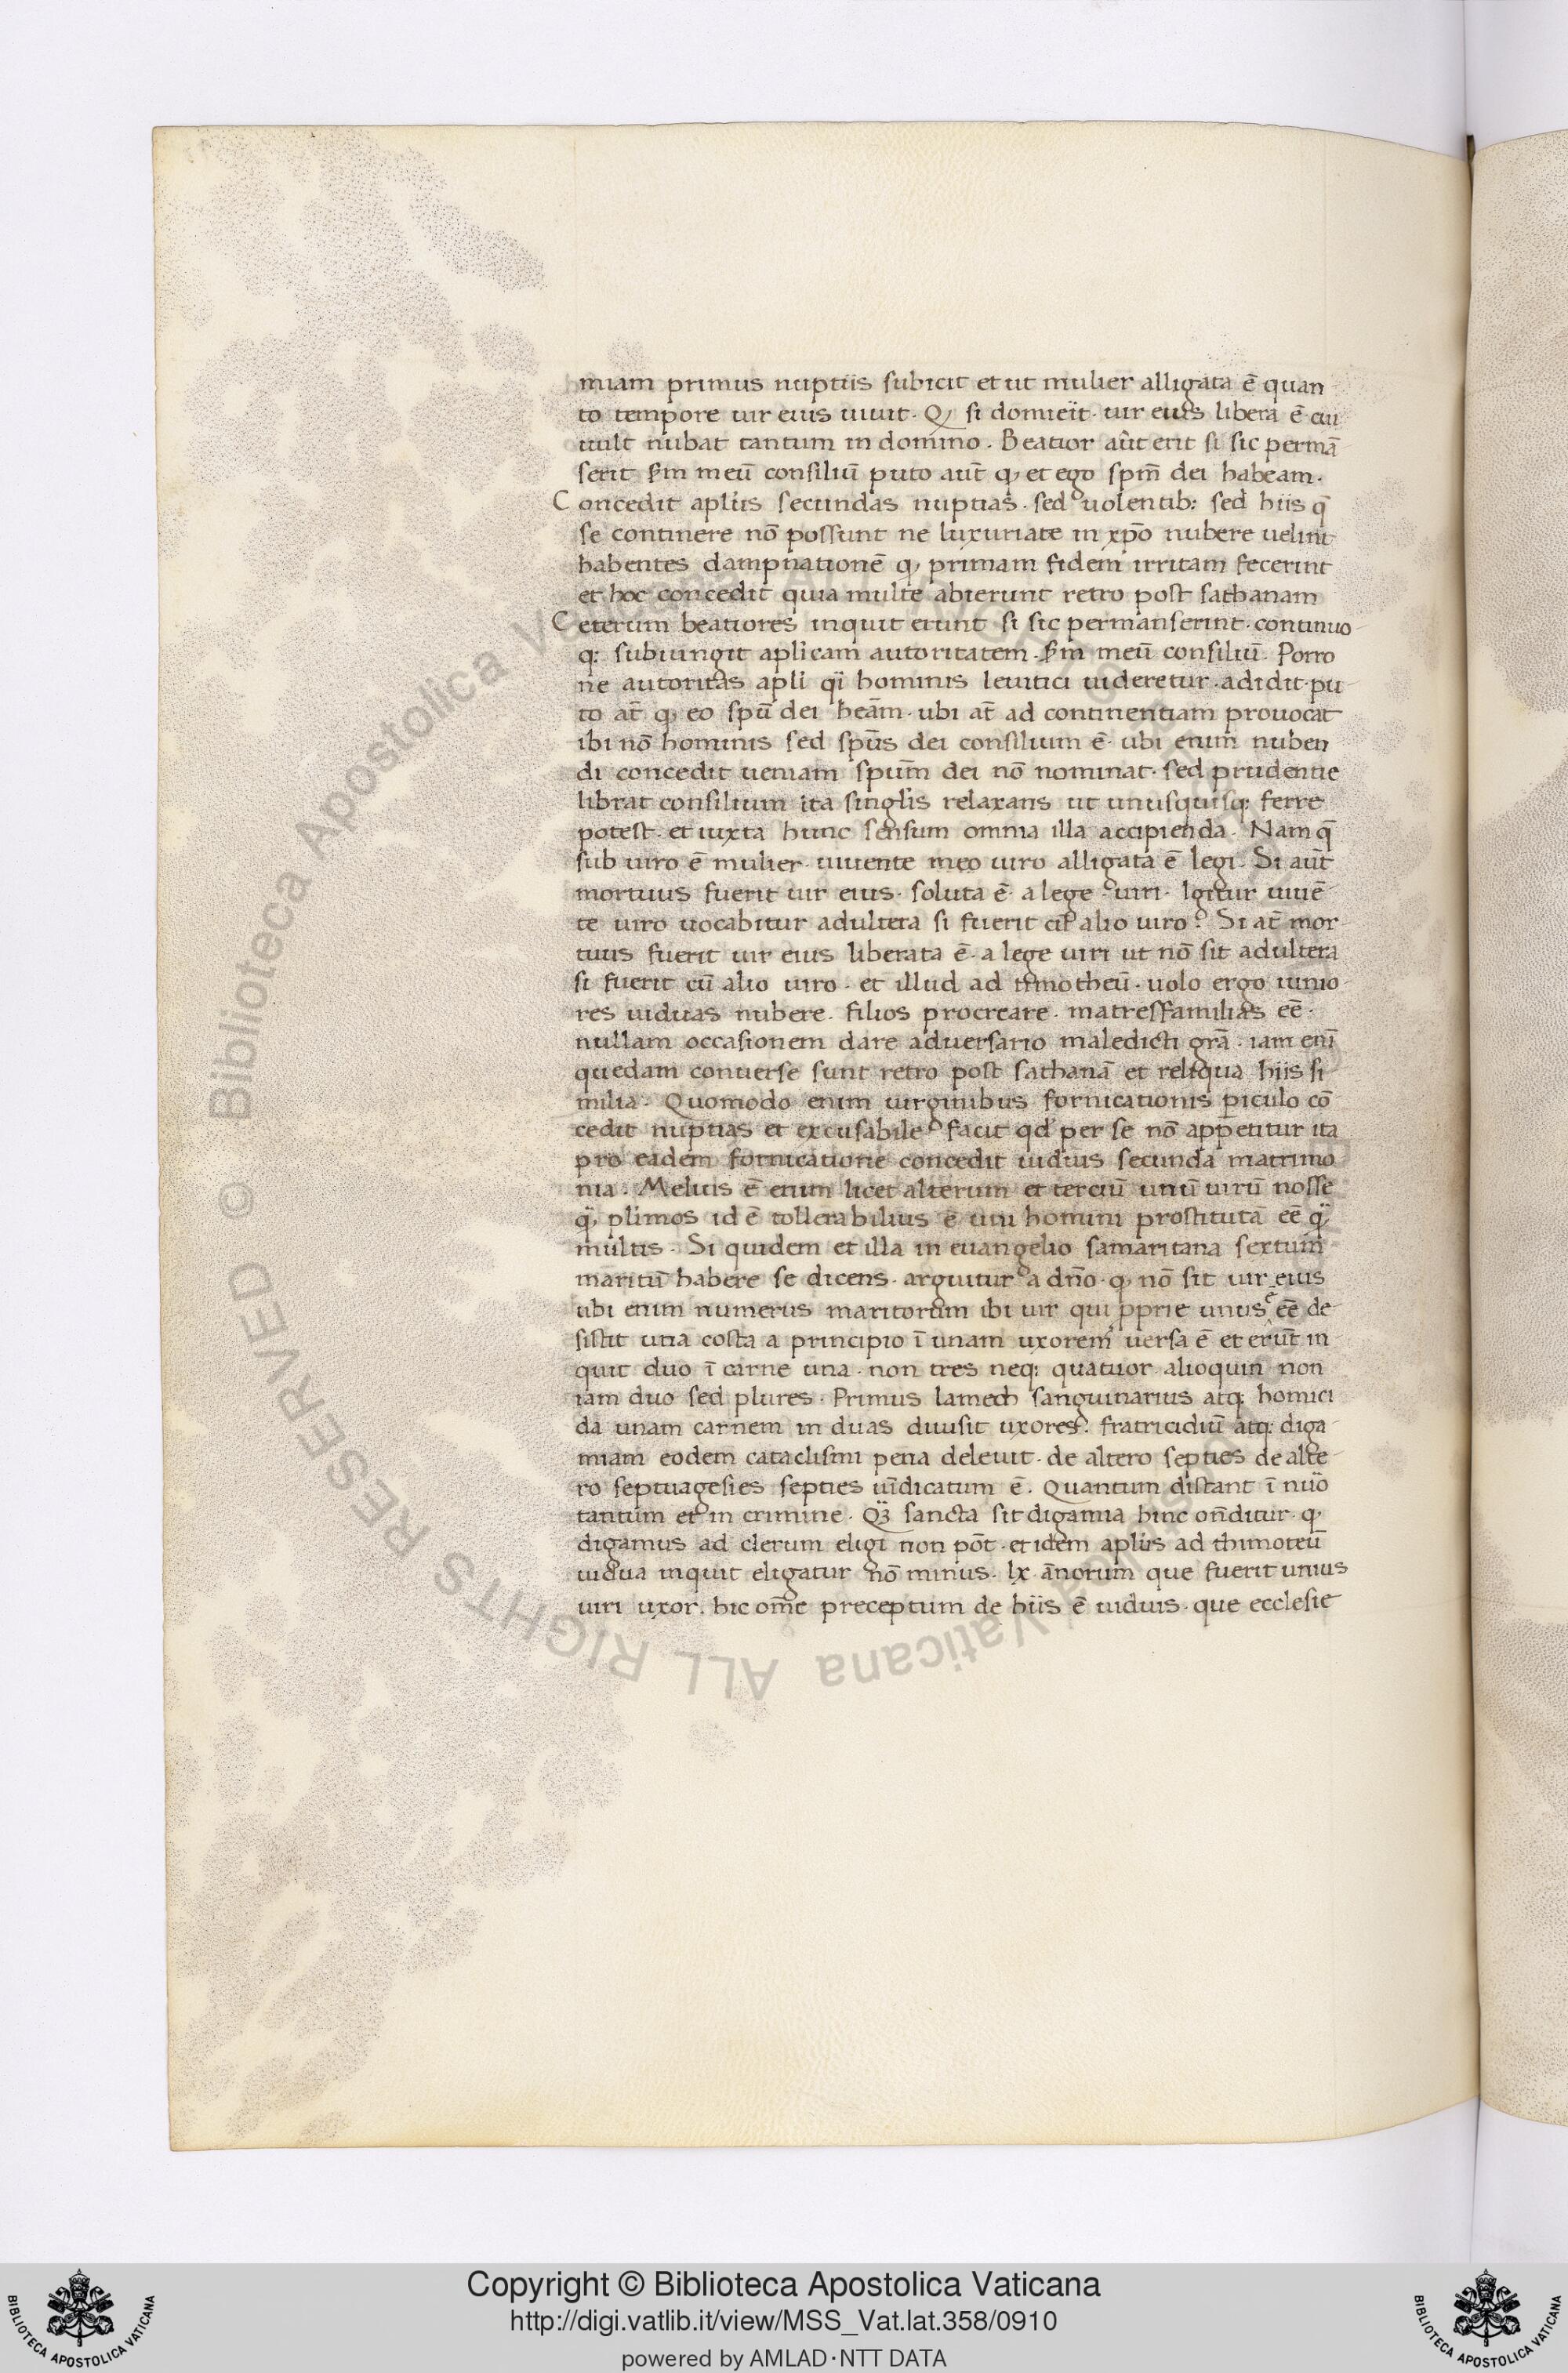 miam primus nuptiis subicit et ut mulier alligata ē quan
to tempore uir eius uiuit. Qꝫ si dormieīt. uir eius libera ē cui
uult nubat tantum in domino. Beatior aūt erit si sic permā
serit ẜm meū consiliū puto aūt qꝫ et ego spm̄ dei habeam.
Concedit aplūs secundas nuptias. sed uolentibꝫ sed hiis q̄
se continere nō possunt ne luxuriate in xp̄o nubere uelint
habentes dampnationē qꝫ primam fidem irritam fecerint
et hoc concedit quia multe abierunt retro post sathanam
Ceterum beatiores inquit erunt si sic permanserint. continuo
qꝫ subiungit aplicam autoritatem. ẜm meū consiliū. Porro
ne autoritas apli q̈i hominis leuitici uideretur. adidit. pu
to at̄ qꝫ eo spū dei heām. ubi at̄ ad continentiam prouocat
ibi nō hominis sed spūs dei consilium ē. ubi enim nuben
di concedit ueniam spum̄ dei nō nominat. sed prudentie
librat consilium ita singlis relaxans ut unusquisqꝫ ferre
potest. et iuxta hunc sensum omnia illa accipienda. Nam q̄
sub uiro ē mulier. uiuente meo uiro alligata ē legi. Si aūt
mortuus fuerit uir eius. soluta ē. a lege. uiri. Igitur uiuē
te uiro uocabitur adultera si fuerit cū alio uiro. Si at̄ mor
tuus fuerit uir eius liberata ē. a lege uiri ut nō sit adultera
si fuerit cū alio uiro. et illud ad timotheū. uolo ergo iunio
res uiduas nubere. filios procreare. matresfamilias eē.
nullam occasionem dare aduersario maledicti grā. iam enī
quedam conuerse sunt retro post sathanā et reliqua hiis si
milia. Quomodo enim uirginibus fornicationis piculo cō
cedit nuptias et excusabile facit qd per se nō appetitur ita
pro eadem fornicatione concedit uiduis secunda matrimo
nia. Melius ē enim licet alterum et terciū unū uirū nosse
q̈ꝫ plimos id ē tollerabilius ē uni homini prostitutā eē q̈ꝫ
multis. Si quidem et illa in euangelio samaritana sextum
maritū habere se dicens. arguitur a dn̄o. qꝫ nō sit uir eius
ubi enim numerus maritorum ibi uir qui pprie unus ē eē de
sistit una costa a principio ī unam uxorem uersa ē et erūt in
quit duo ī carne una. non tres neqꝫ quatuor alioquin non
iam duo sed plures. Primus lamech sanguinarius atqꝫ homici
da unam carnem in duas diuisit uxores. fratricidiū atqꝫ diga
miam eodem cataclismi pena deleuit. de altero septies de alte
ro septuagesies septies uīdicatum ē. Quantum distant ī nūo
tantum et in crimine. Q̈ꝫ sancta sit digamia hinc on̄ditur. qꝫ
digamus ad clerum eligi non pōt. et idem aplūs ad thimoteū
uidua inquit eligatur nō minus. lx. ānorum que fuerit unius
uiri uxor. hic om̄e preceptum de hiis ē uiduis. que ecclesie
© Biblioteca Apostolica Vaticana ALL RIGHTS RESERVED
Copyright © Biblioteca Apostolica Vaticana
http://digi.vatlib.it/view/MSS_Vat.lat.358/0910
powered by AMLAD·NTT DATA
BIBLIOTECA APOSTOLICA VATICANA
BIBLIOTECA APOSTOLICA VATICANA